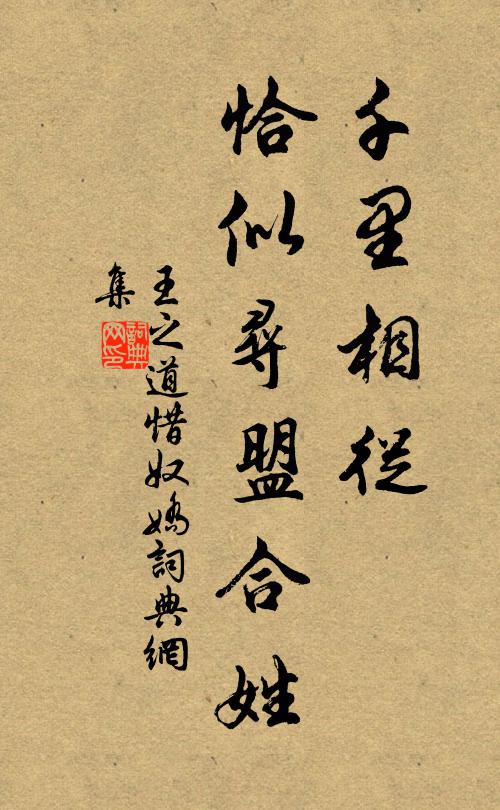 千里相從
恰似尋盟合姓
王之道惜奴嬌詞典網
集
詞典网印